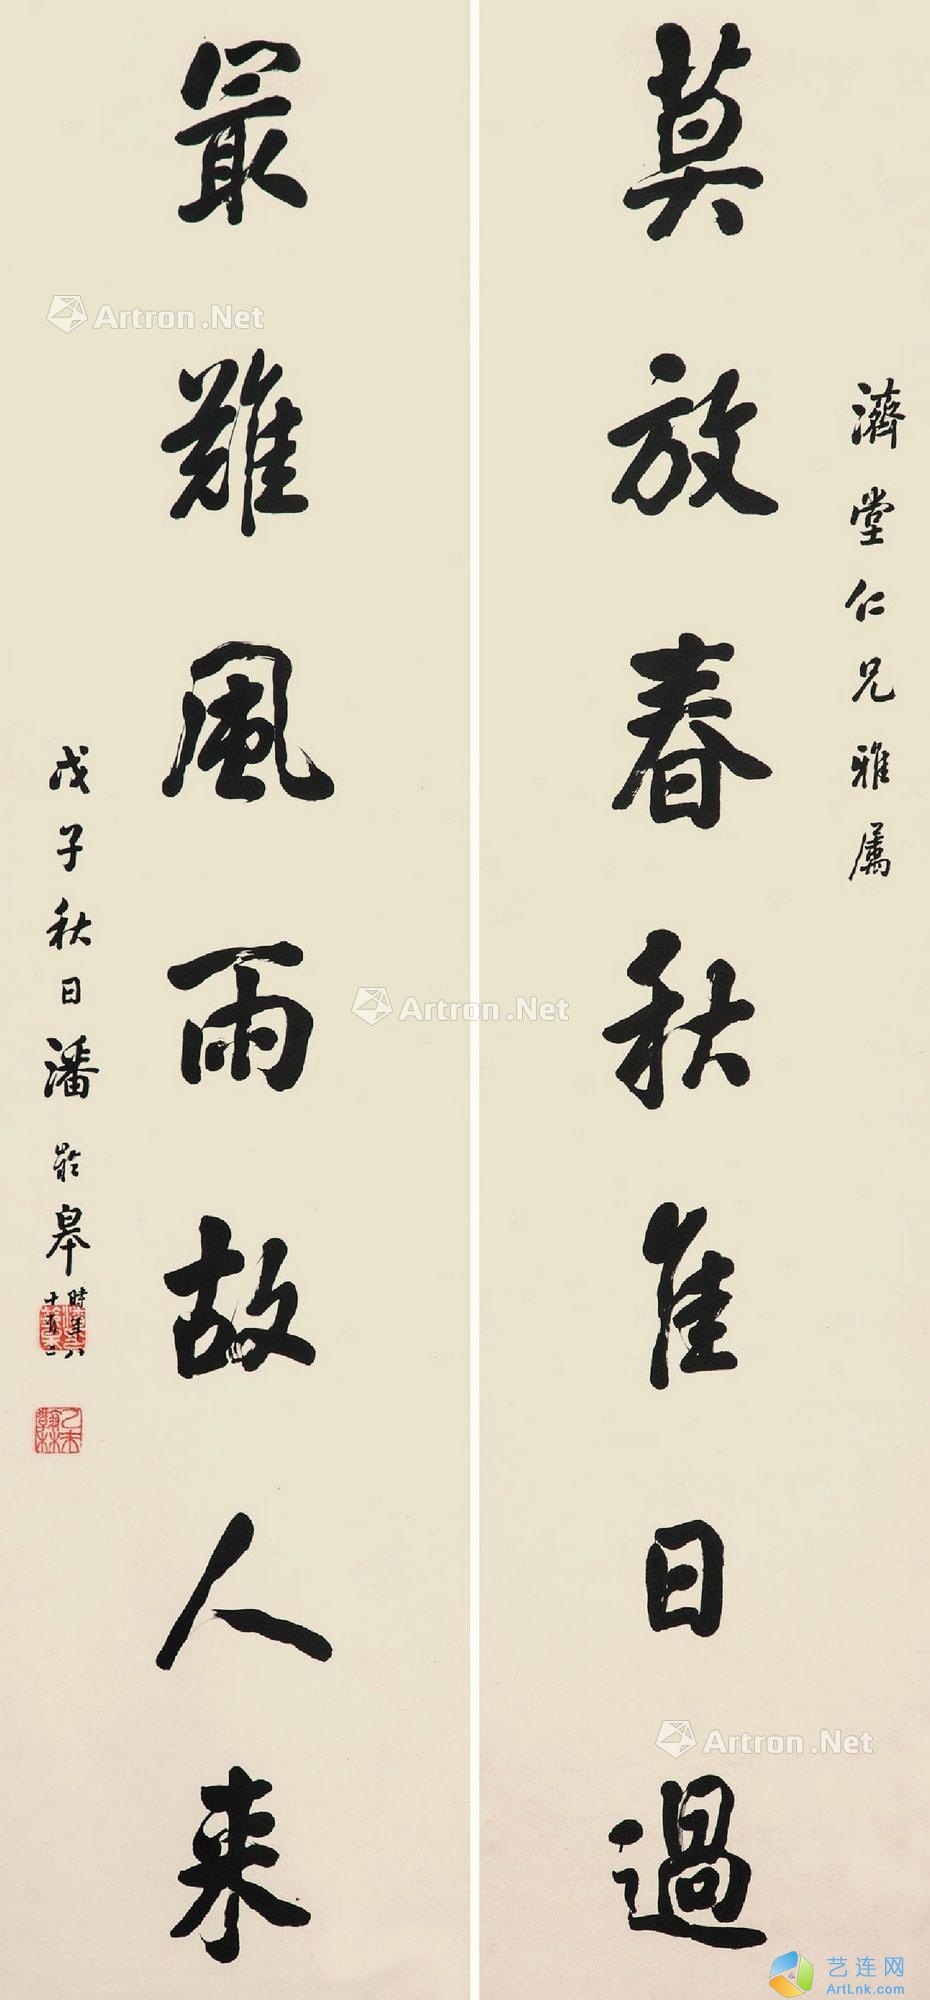 濟堂仁兄雅屬
莫放春秋佳日過
最難風雨故人來
戊子秋日潘齡皋時年八
十有二
乙未翰林
Artron.Net
Artron.Net
Artron.Net
艺连网
ArtLnk.com